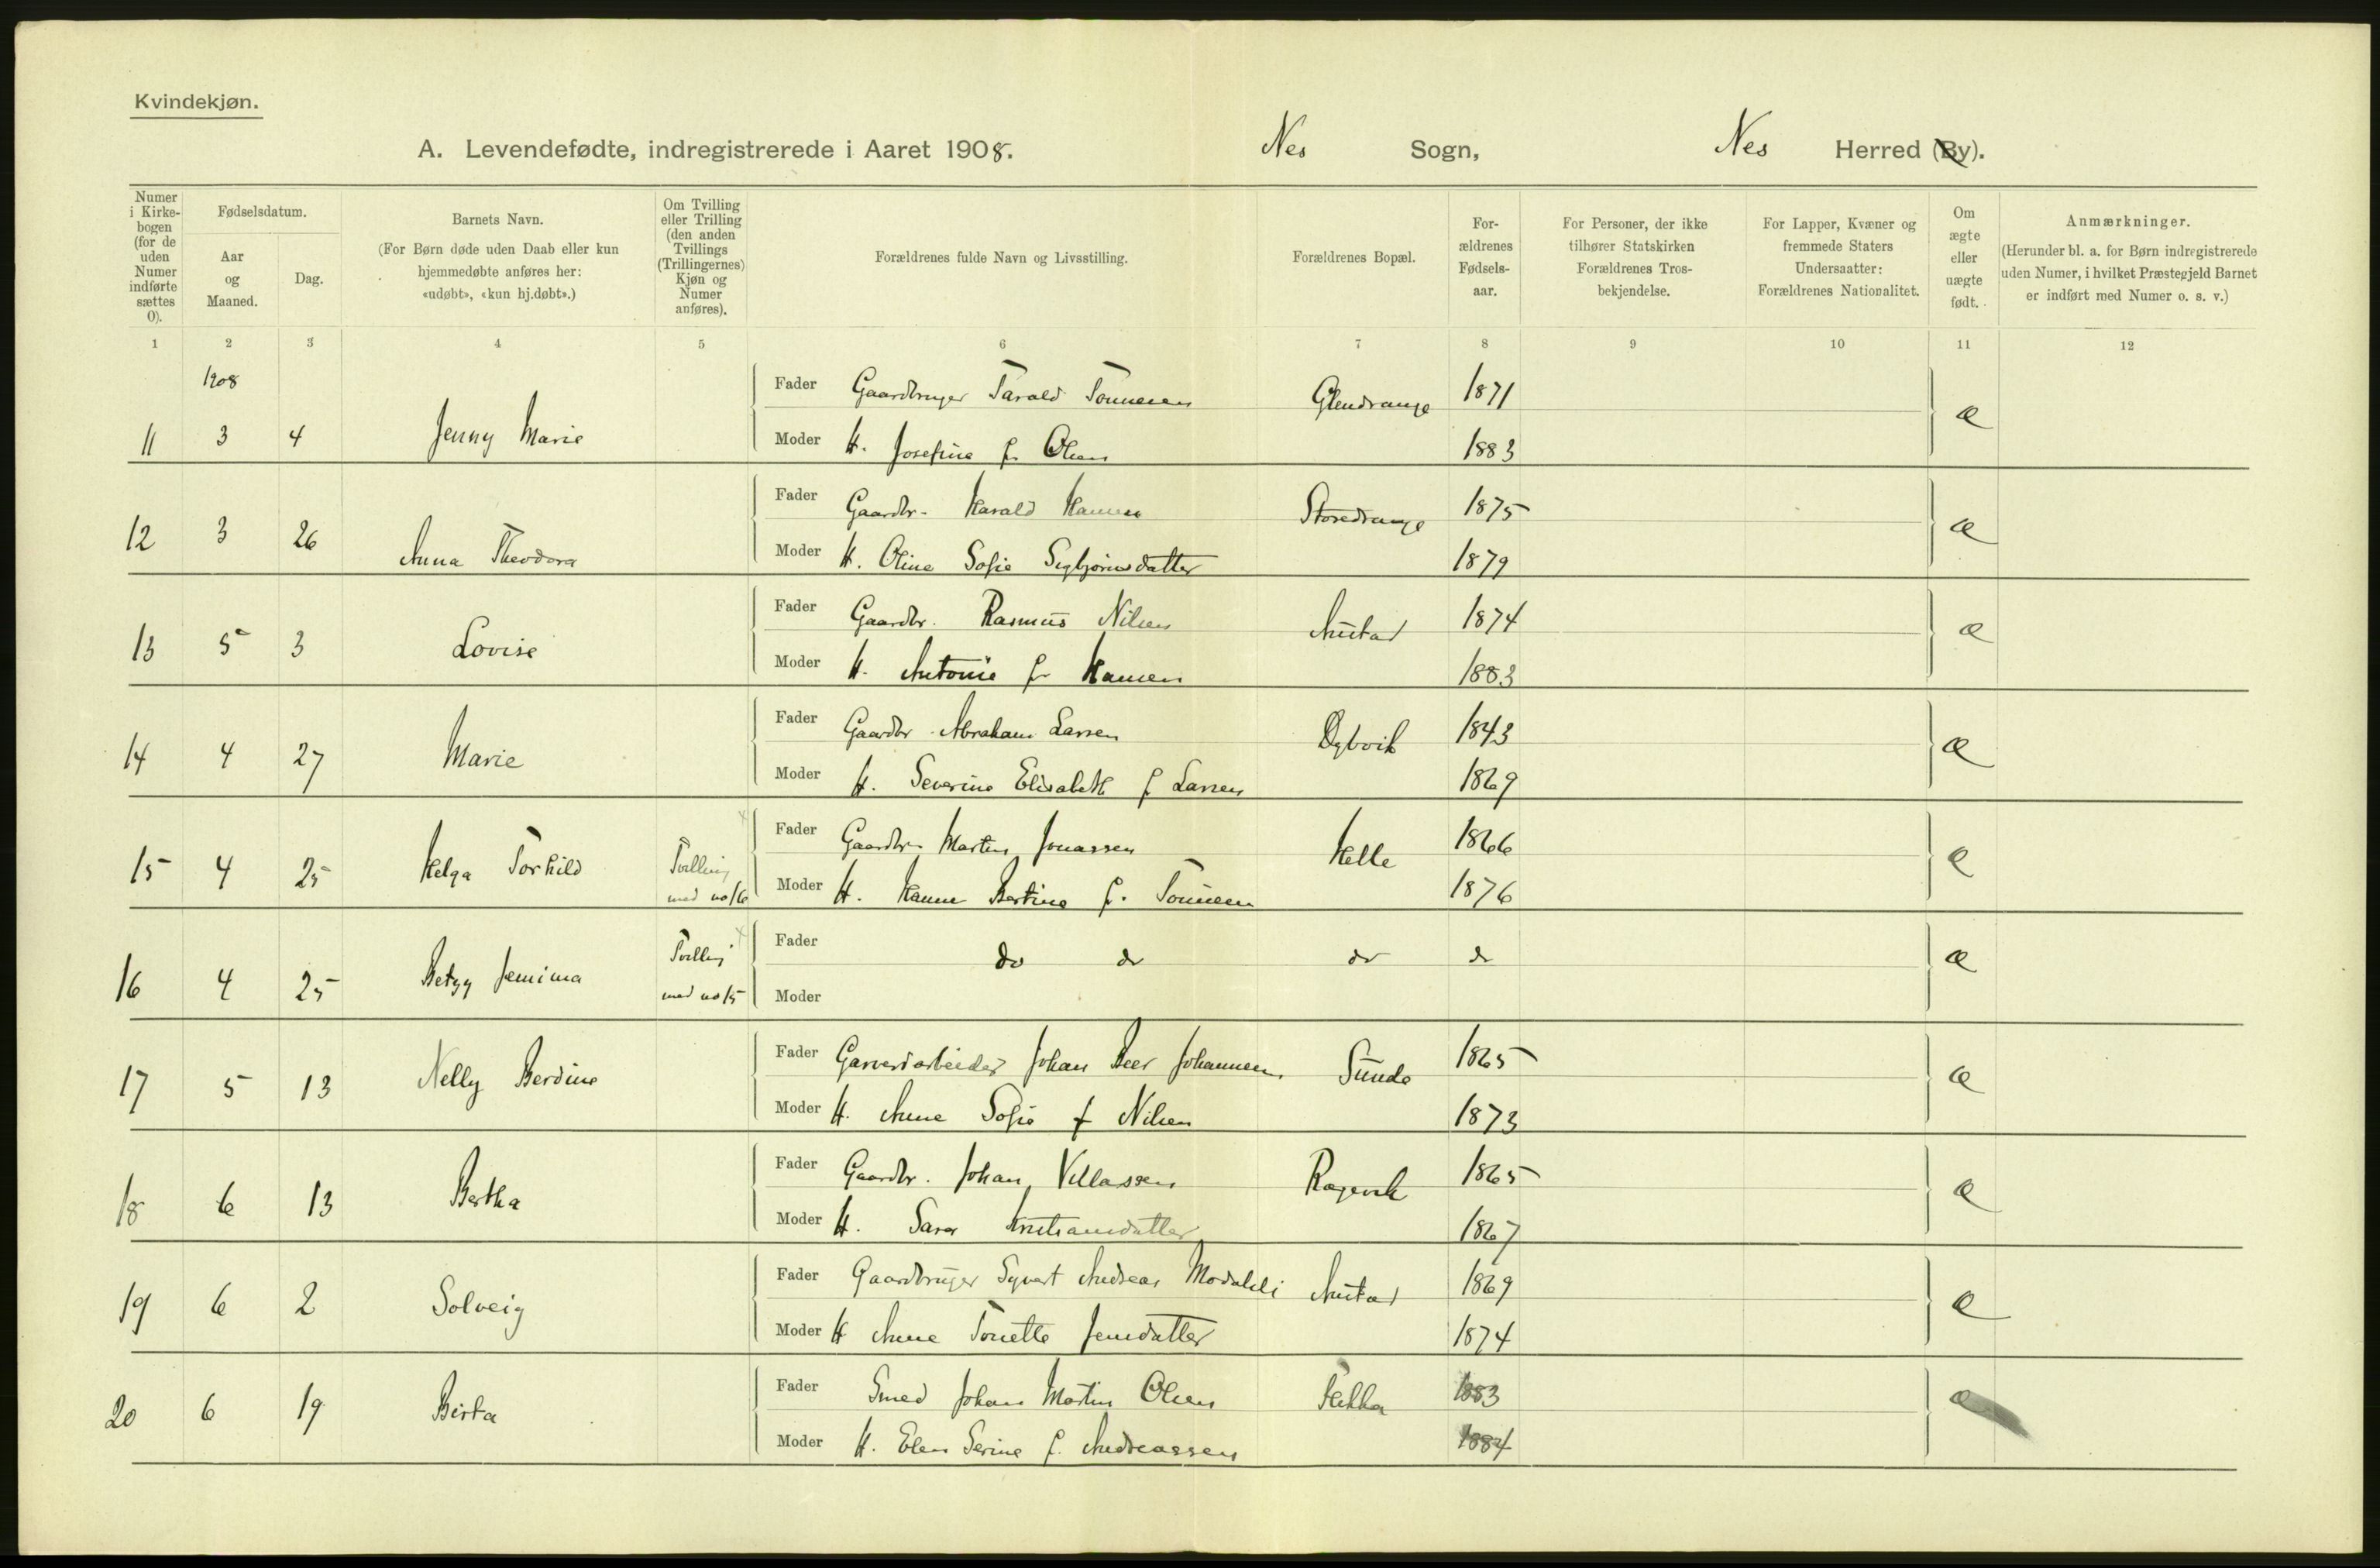 Kvindekjøn.
A. Levendefødte, indregistrerede i Aaret 1908. Nes Sogn, Nes Herred (By).
Numer i Kirke-bogen (for de uden Numer indførte sættes 0).
Fødselsdatum.
Aar og Maaned.
Dag.
Barnets Navn.
(For Børn døde uden Daab eller kun hjemmedøbte anføres her: «udøbt», «kun hj.døbt».)
Om Tvilling eller Trilling (den anden Tvillings (Trillingernes) Kjøn og Numer anføres).
Forældrenes fulde Navn og Livsstilling.
Forældrenes Bopæl.
For-ældrenes Fødsels-aar.
For Personer, der ikke tilhører Statskirken Forældrenes Tros-bekjendelse.
For Lapper, Kvæner og fremmede Staters Undersaatter: Forældrenes Nationalitet.
Om ægte eller uægte født.
Anmærkninger.
(Herunder bl. a. for Børn indregistrerede uden Numer, i hvilket Præstegjeld Barnet er indført med Numer o. s. v.)
1 2 3 4 5 6 7 8 9 10 11 12
1908
Fader Gaardbruger Tarald Tønnesen Glendrange 1871
11 3 4 Jenny Marie Moder H. Josefine f. Olsen 1883 æ
Fader Gaardbr. Harald Hansen Storedrange 1875
12 3 26 Anna Theodora Moder H. Oline Sofie Sigbjørnsdatter 1879 æ
Fader Gaardbr. Rasmus Nilsen Austad 1874
13 5 3 Lovise Moder H. Antonie f. Hansen 1883 æ
Fader Gaardbr. Abraham Larsen Dybvik 1843
14 4 27 Marie Moder H. Severine Elisabeth f. Larsen 1869 æ
Fader Gaardbr. Martin Jonassen Helle 1866
15 4 25 Helga Torhild Tvilling med no 16 Moder H. Hanne Bertine f. Tønnesen 1876 æ
Fader do do do do
16 4 25 Betzy Jemima Tvilling med no 15 Moder æ
Fader Garveriarbeider Johan Beer Johannesen Sunde 1865
17 5 13 Nelly Berdine Moder H. Anne Sofie f Nilsen 1873 æ
Fader Gaardbr. Johan Villassen 1865
18 6 13 Bertha Moder H. Sara Kristiansdatter 1867 æ
Fader Gaardbruger Syvert Andreas Modalsli Austad 1869
19 6 2 Solveig Moder H Anne Tonette Jensdatter 1874 æ
Fader Smed Johan Martin Olsen Flekka 1883
20 6 19 Berta Moder H. Elen Serine f. Andreassen 1884 æ